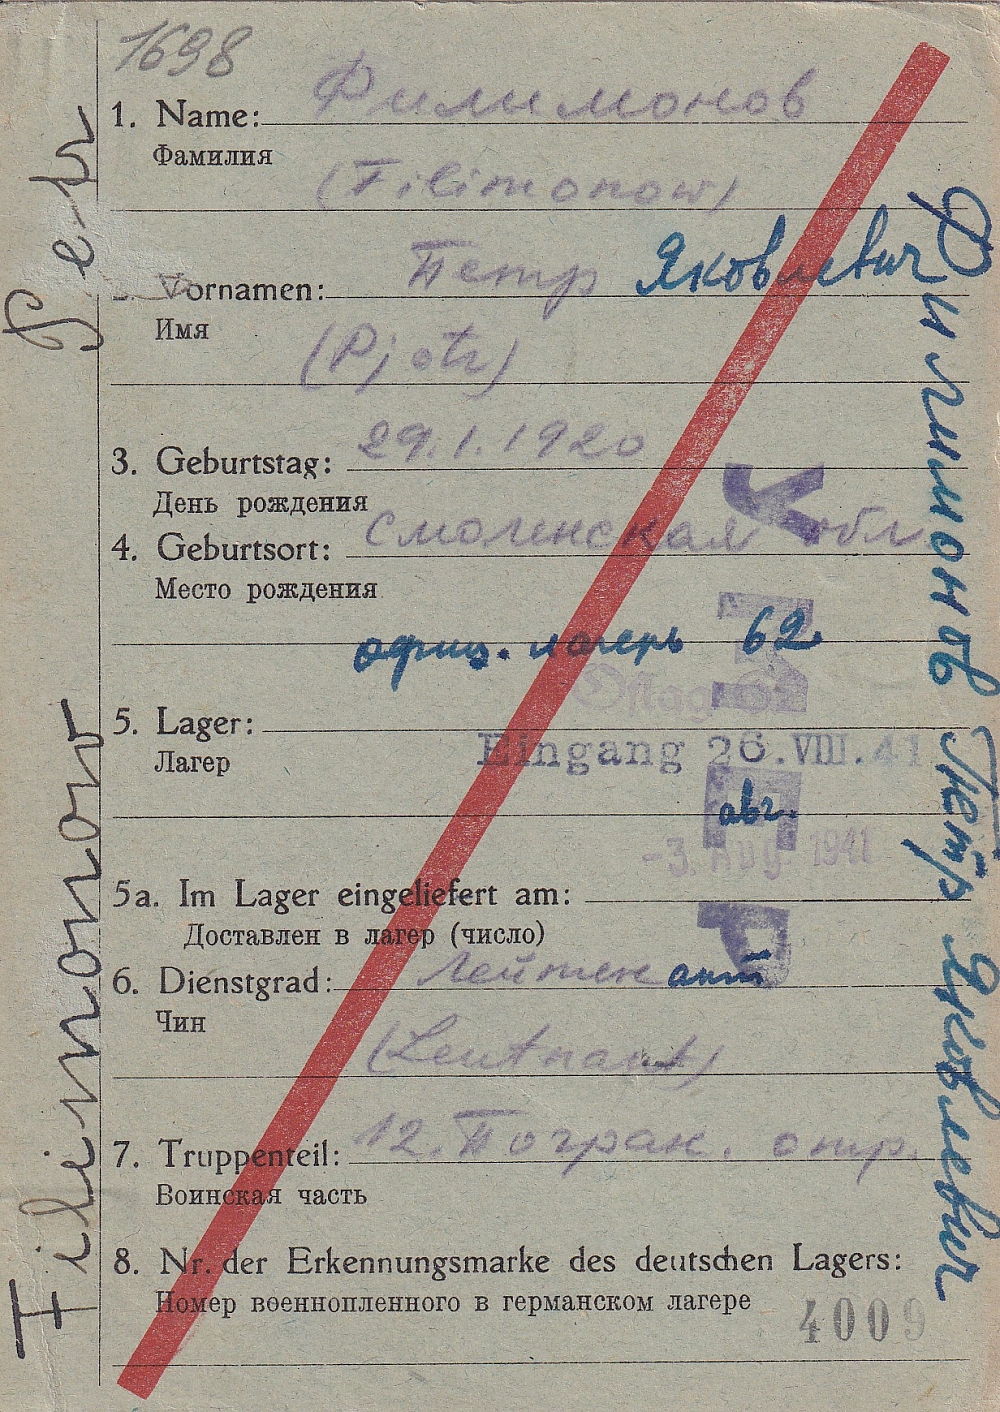 1698
1. Name: Филимонов
Фамилия
(Filimonow)
Vornamen: Петр Яковлевич
Имя
(Pjotr)
3. Geburtstag: 29.1.1920
День рождения
4. Geburtsort: Смоленская обл
Место рождения
офиц. лагерь 62.
Oflag 62
5. Lager:
Лагерь
Eingang 26.VIII.41
авг.
-3. Aug 1941
5a. Im Lager eingeliefert am:
Доставлен в лагер (число)
6. Dienstgrad: Лейтенант
Чин
(Leutnant)
7. Truppenteil: 12. Погран. отр.
Воинская часть
8. Nr. der Erkennungsmarke des deutschen Lagers:
Номер военнопленного в германском лагере
4009
Filimonow
Филимонов Пётр Яковлевич